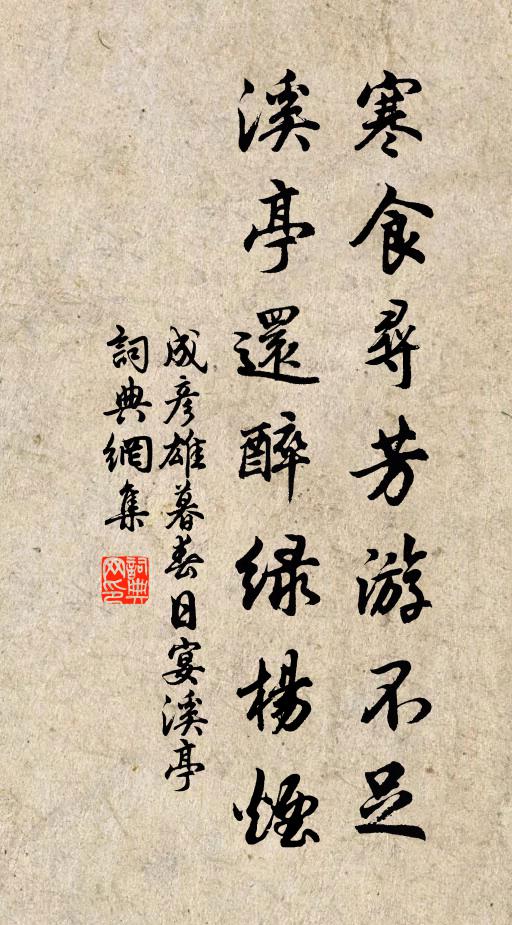 寒食尋芳游不足
溪亭還醉綠楊煙
成彥雄暮春日宴溪亭
詞典網集
詞典網印